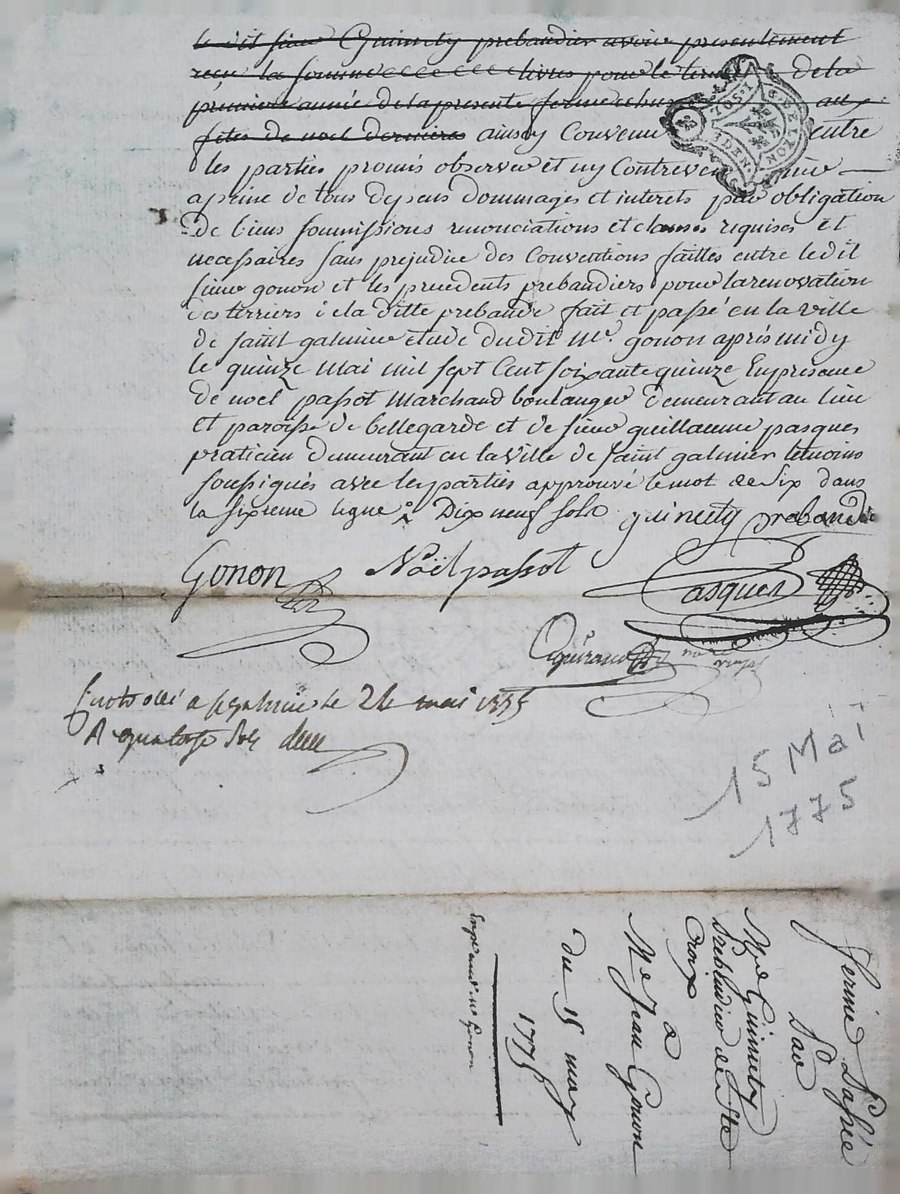 le dit sieur Guinety prebandier avoir presentement
reçu la somme livres pour le de la
premiere année de la presente ferme aux
fêtes de noel dernieres ainsy Convenu entre
les parties promis observer et ny Contrevenir
a peine de tous depens dommages et interets par obligation
de biens soumissions renonciations et clauses requises et
necessaires sans prejudice des Conventions faittes entre ledit
sieur gonon et les precedents prebandiers pour la renovation
des terriers de la ditte prebande fait et passé en la ville
de saint galmier etude dudit Me. gonon après midy
le quinze Mai mil sept Cent soixante quinze En presence
de noel passot Marchand boulanger demeurant au lieu
et paroisse de bellegarde et de sieur guillaume pasques
praticien demeurant en la ville de saint galmier temoins
soussignés avec les parties approuvé le mot de six dans
la sixieme ligne Dix neuf sols guinety prebandier
Gonon Noël passot Pasques
15 Mai
1775
à St galmier le 24 mai 1775
R quatorze sols
ferme Passée
Par
Mre Guinety
Prebandier de Ste
Croix
a
Me Jean Gonon
du 15 may
1775
Gonon